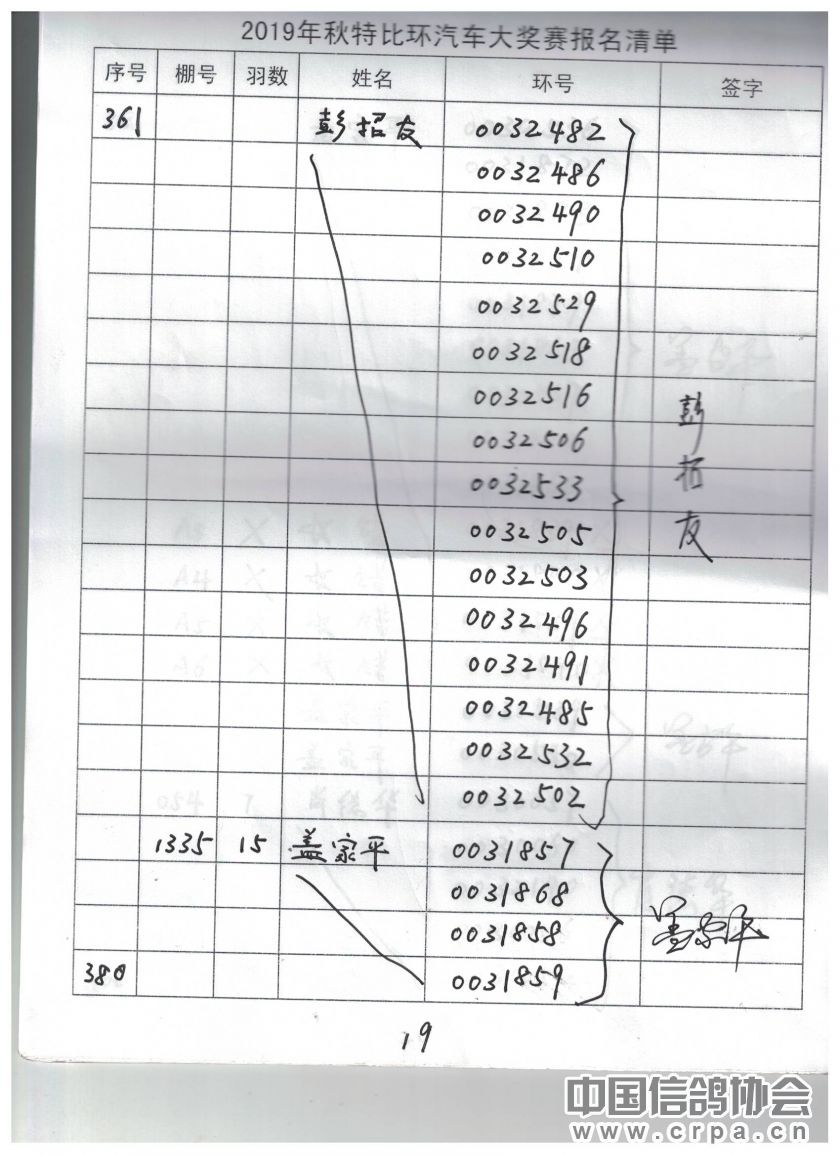 2019年秋特比环汽车大奖赛报名清单
序号 棚号 羽数 姓名 环号 签字
361 彭招友 0032482
0032486
0032490
0032510
0032529
0032518
0032516
0032506
0032533
0032505
0032503
0032496
0032491
0032485
0032532
0032502
彭招友
1335 15 盖家平 0031857
0031868
0031858
盖家平
380 0031859
19
中国信鸽协会
www.crpa.cn